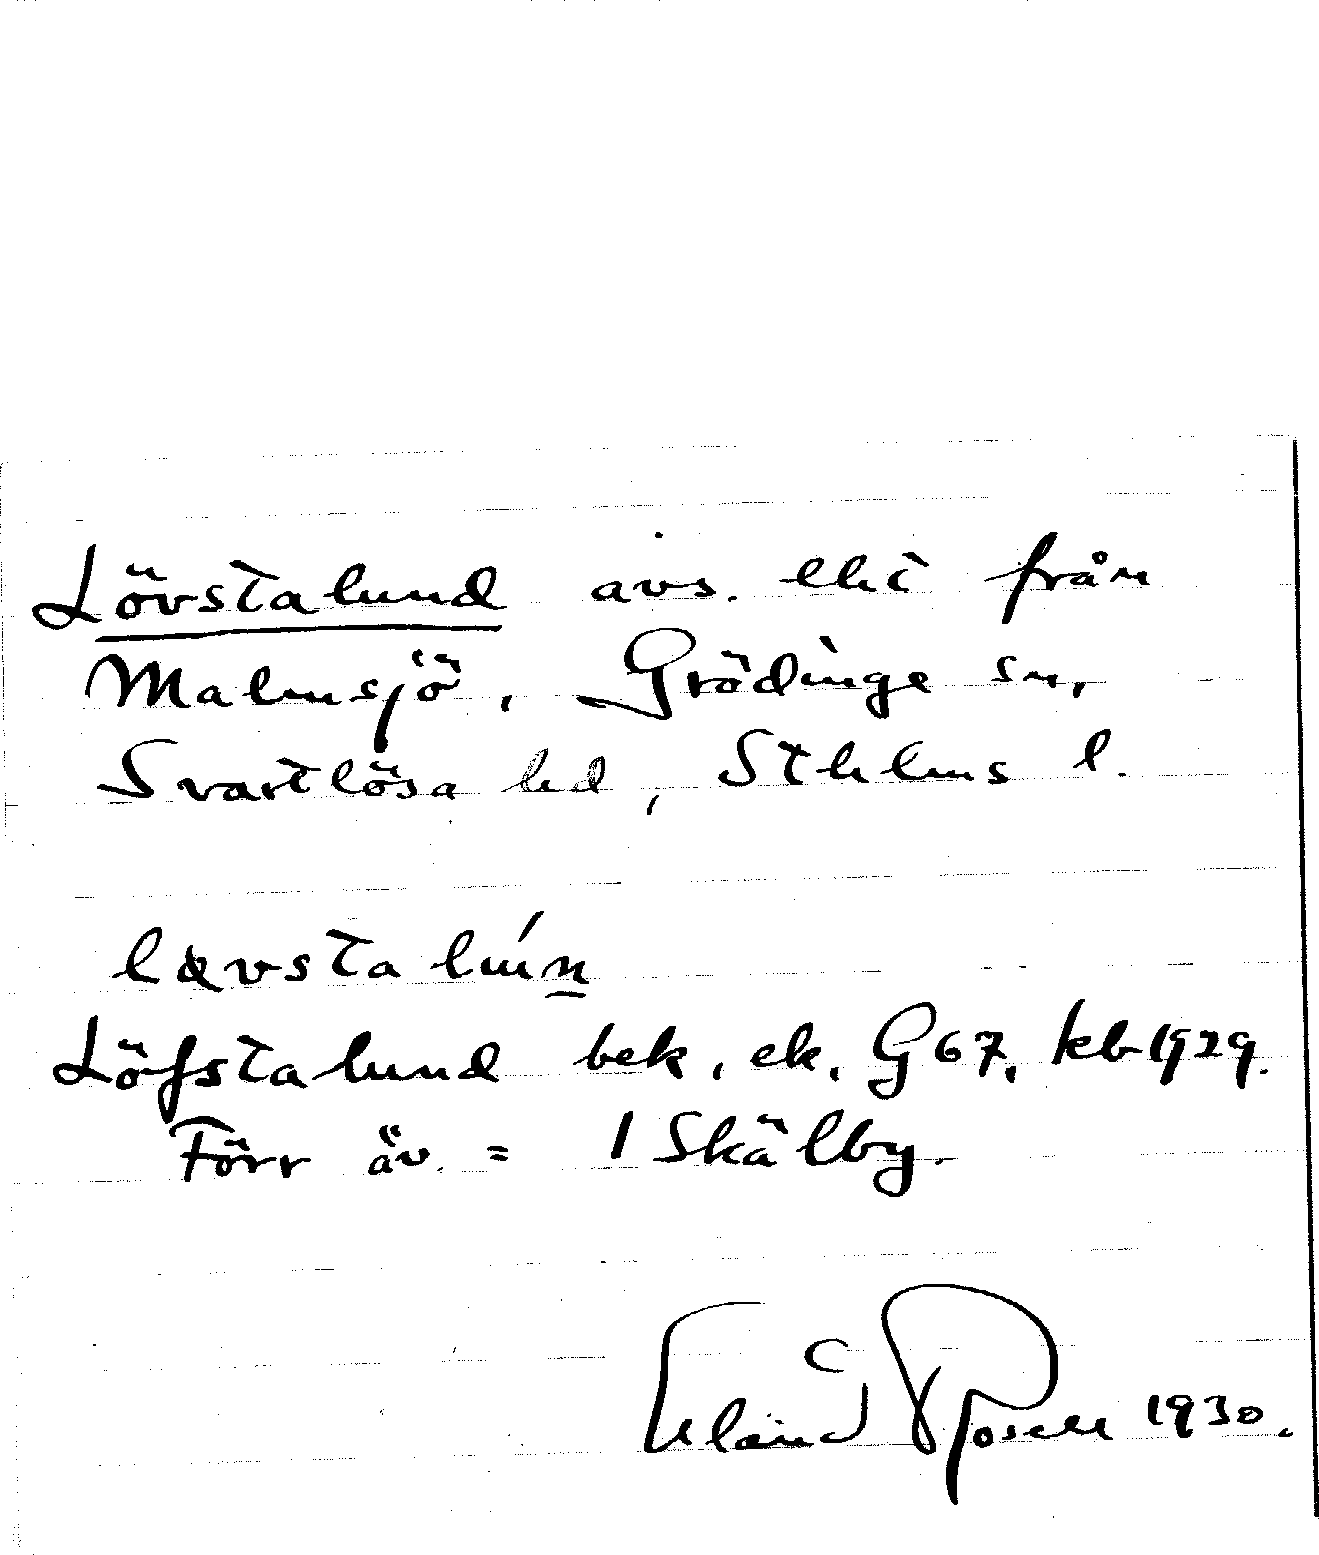 Lövstalund avs. lht från
Malmsjö, Grödinge sn,
Svartlösa hd, Sthlms l.
Löfstalund bek, ek, G67, kb 1929.
Förr äv. = 1 Skälby.
Erland Rosell 1930.